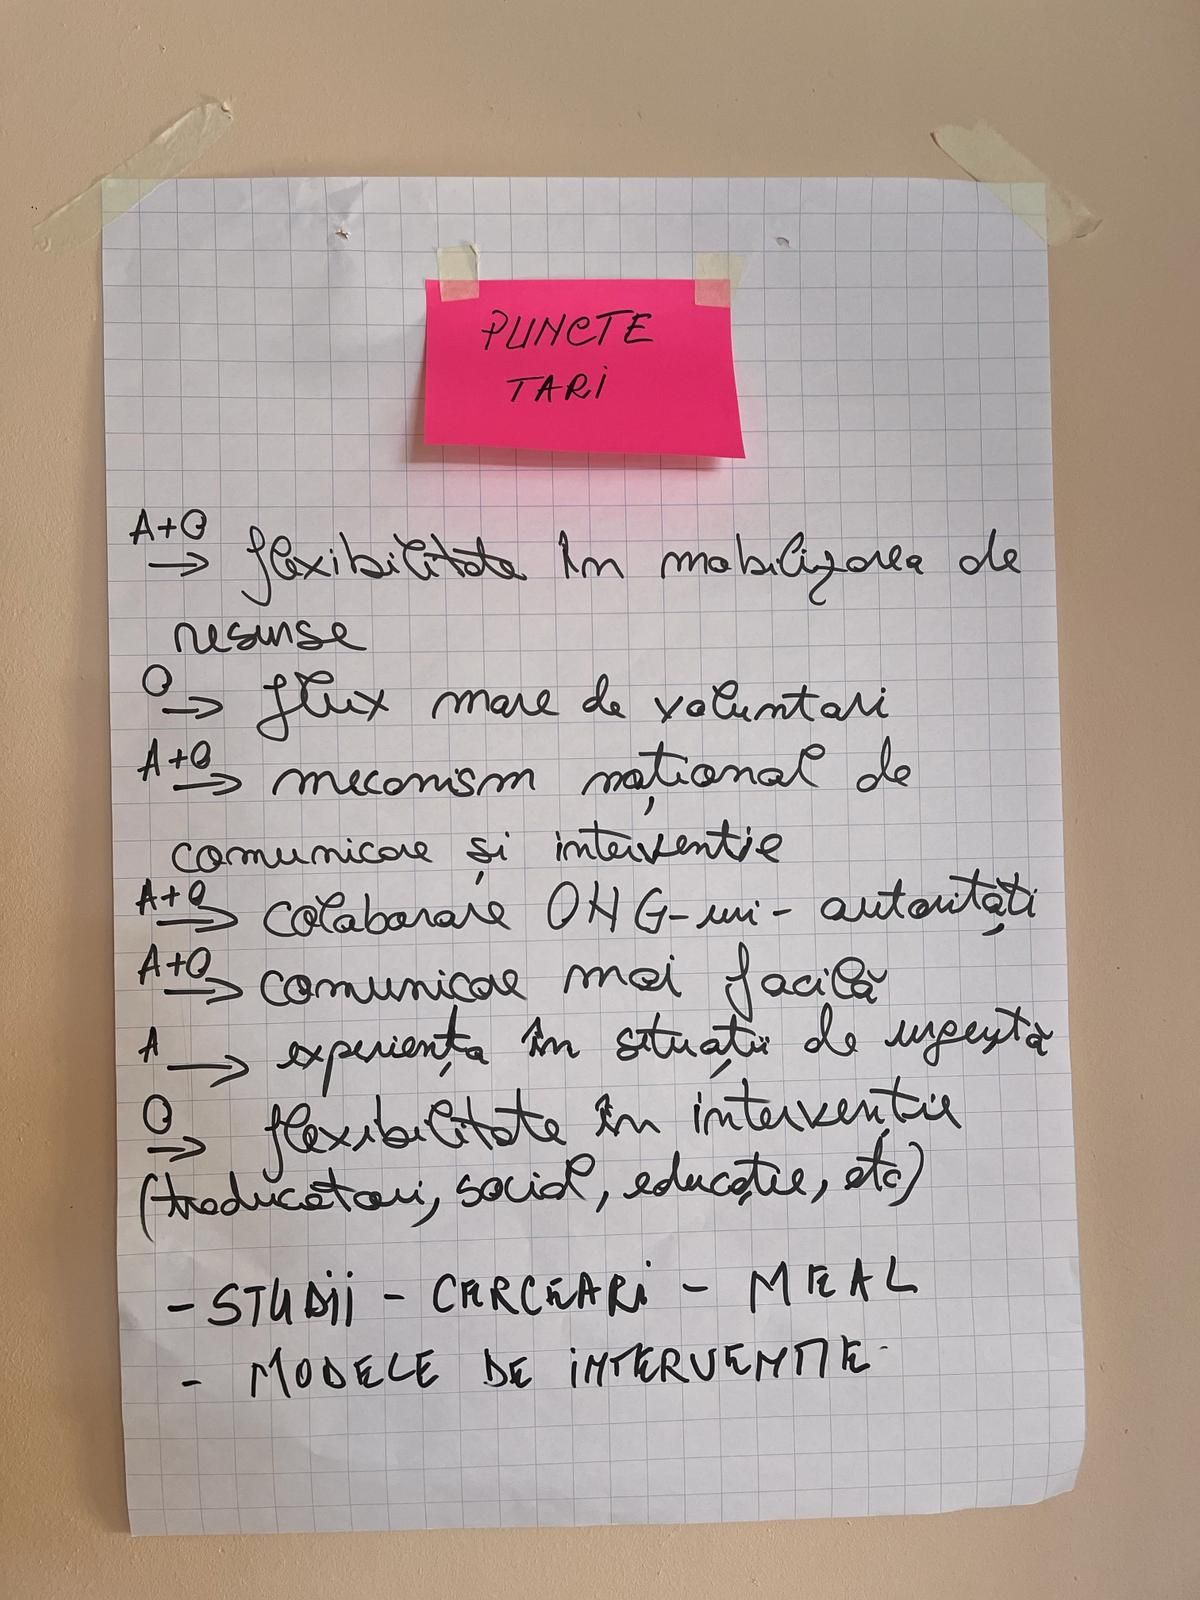 PUNCTE
TARI
A+O
→ flexibilitate în mobilizarea de
resurse
O → flux mare de voluntari
A+O → mecanism național de
comunicare și interventie
A+O → colaborare ONG-uri - autorități
A+O → comunicare mai facilă
A → experiența în situații de urgență
O → flexibilitate în intervenție
(traducători, social, educație, etc)
- STUDII - CERCEARI - MEAL
- MODELE DE INTERVENTIE